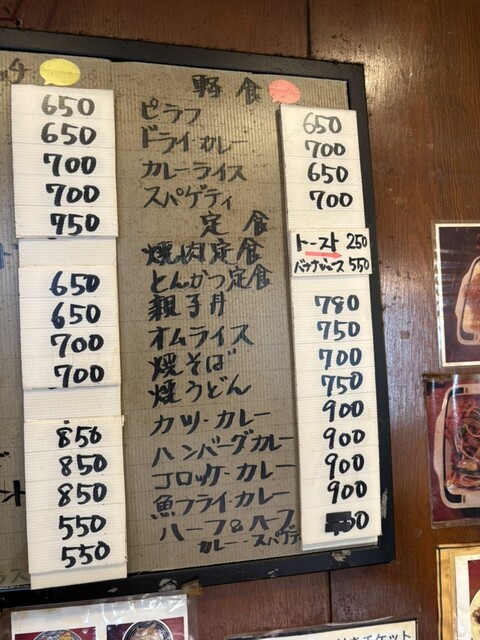 ッチ
650
650
700
700
750
650
650
700
700
850
850
850
550
550
軽食
ピラフ 650
ドライ・カレー 700
カレーライス 650
スパゲティ 700
定食
トースト 250
バックジュース 550
焼肉定食
とんかつ定食
親子丼 780
オムライス 750
焼そば 700
焼うどん 750
カツ・カレー 900
ハンバーグカレー 900
コロッケ・カレー 900
魚フライ・カレー 900
ハーフ&ハーフ
カレー・スパゲテ
チケット